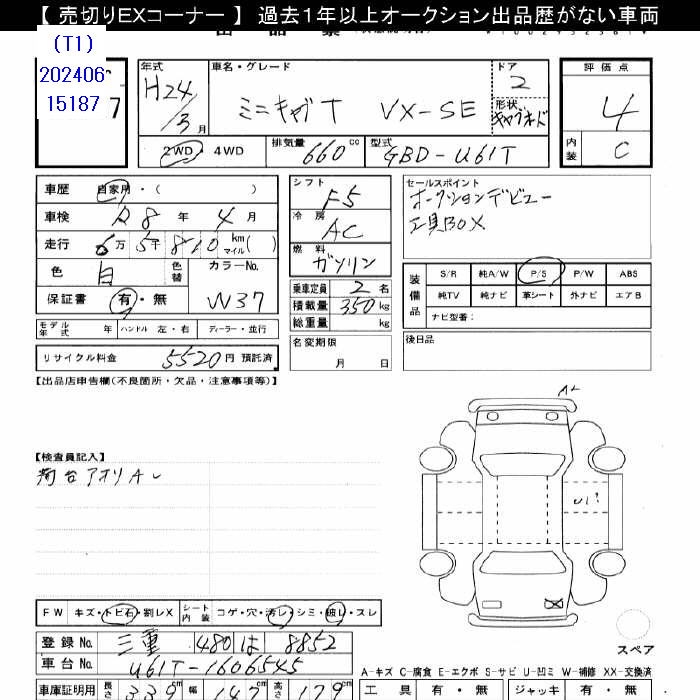 【 売切りEXコーナー 】 過去1年以上オークション出品歴がない車両
(T1)
202406
15187
7
年式 車名・グレード ドア 評価点
H24/3月 ミニキャブT VX-SE 2 4
形状 キャブオーバ
内装 C
2WD・4WD 排気量 660cc 型式 GBD-U61T
車歴 自家用・( )
車検 R8年4月
走行 6万5千810km マイル( )
色 白 色替 カラーNo. W37
保証書 有・無
モデル年式 年 ハンドル 左・右 ディーラー・並行
リサイクル料金 5520円 預託済
シフト F5
冷房 AC
燃料 ガソリン
乗車定員 2名
積載量 350kg
総重量 kg
名変期限 月 日
セールスポイント
オークションデビュー
工具BOX
装備品 S/R 純A/W P/S P/W ABS
純TV 純ナビ 革シート 外ナビ エアB
ナビ型番：
後日品
【出品店申告欄(不良箇所・欠品・注意事項等)】
【検査員記入】
荷台アオリAレ
A2
U1?
FW キズ・トビ石・割レX シート内装 コゲ・穴・汚レ・シミ・破レ・スレ
登録No. 三重 480 は 8852
車台No. U61T-1606545
スペア
A-キズ C-腐食 E-エクボ S-サビ U-凹ミ W-補修 XX-交換済
車庫証明用 長さ 339cm 幅 147cm 高さ 179cm
工具 有・無 ジャッキ 有・無